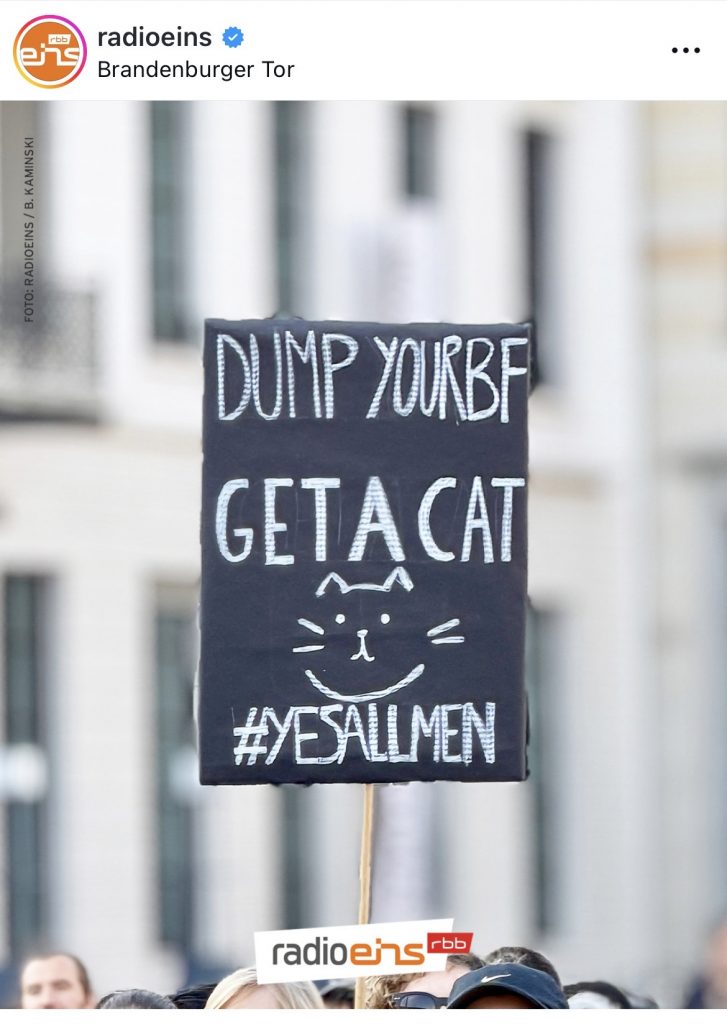 radioeins
Brandenburger Tor
rbb
eins
FOTO: RADIOEINS / B. KAMINSKI
DUMP YOUR BF
GET A CAT
#YESALLMEN
radioeins rbb